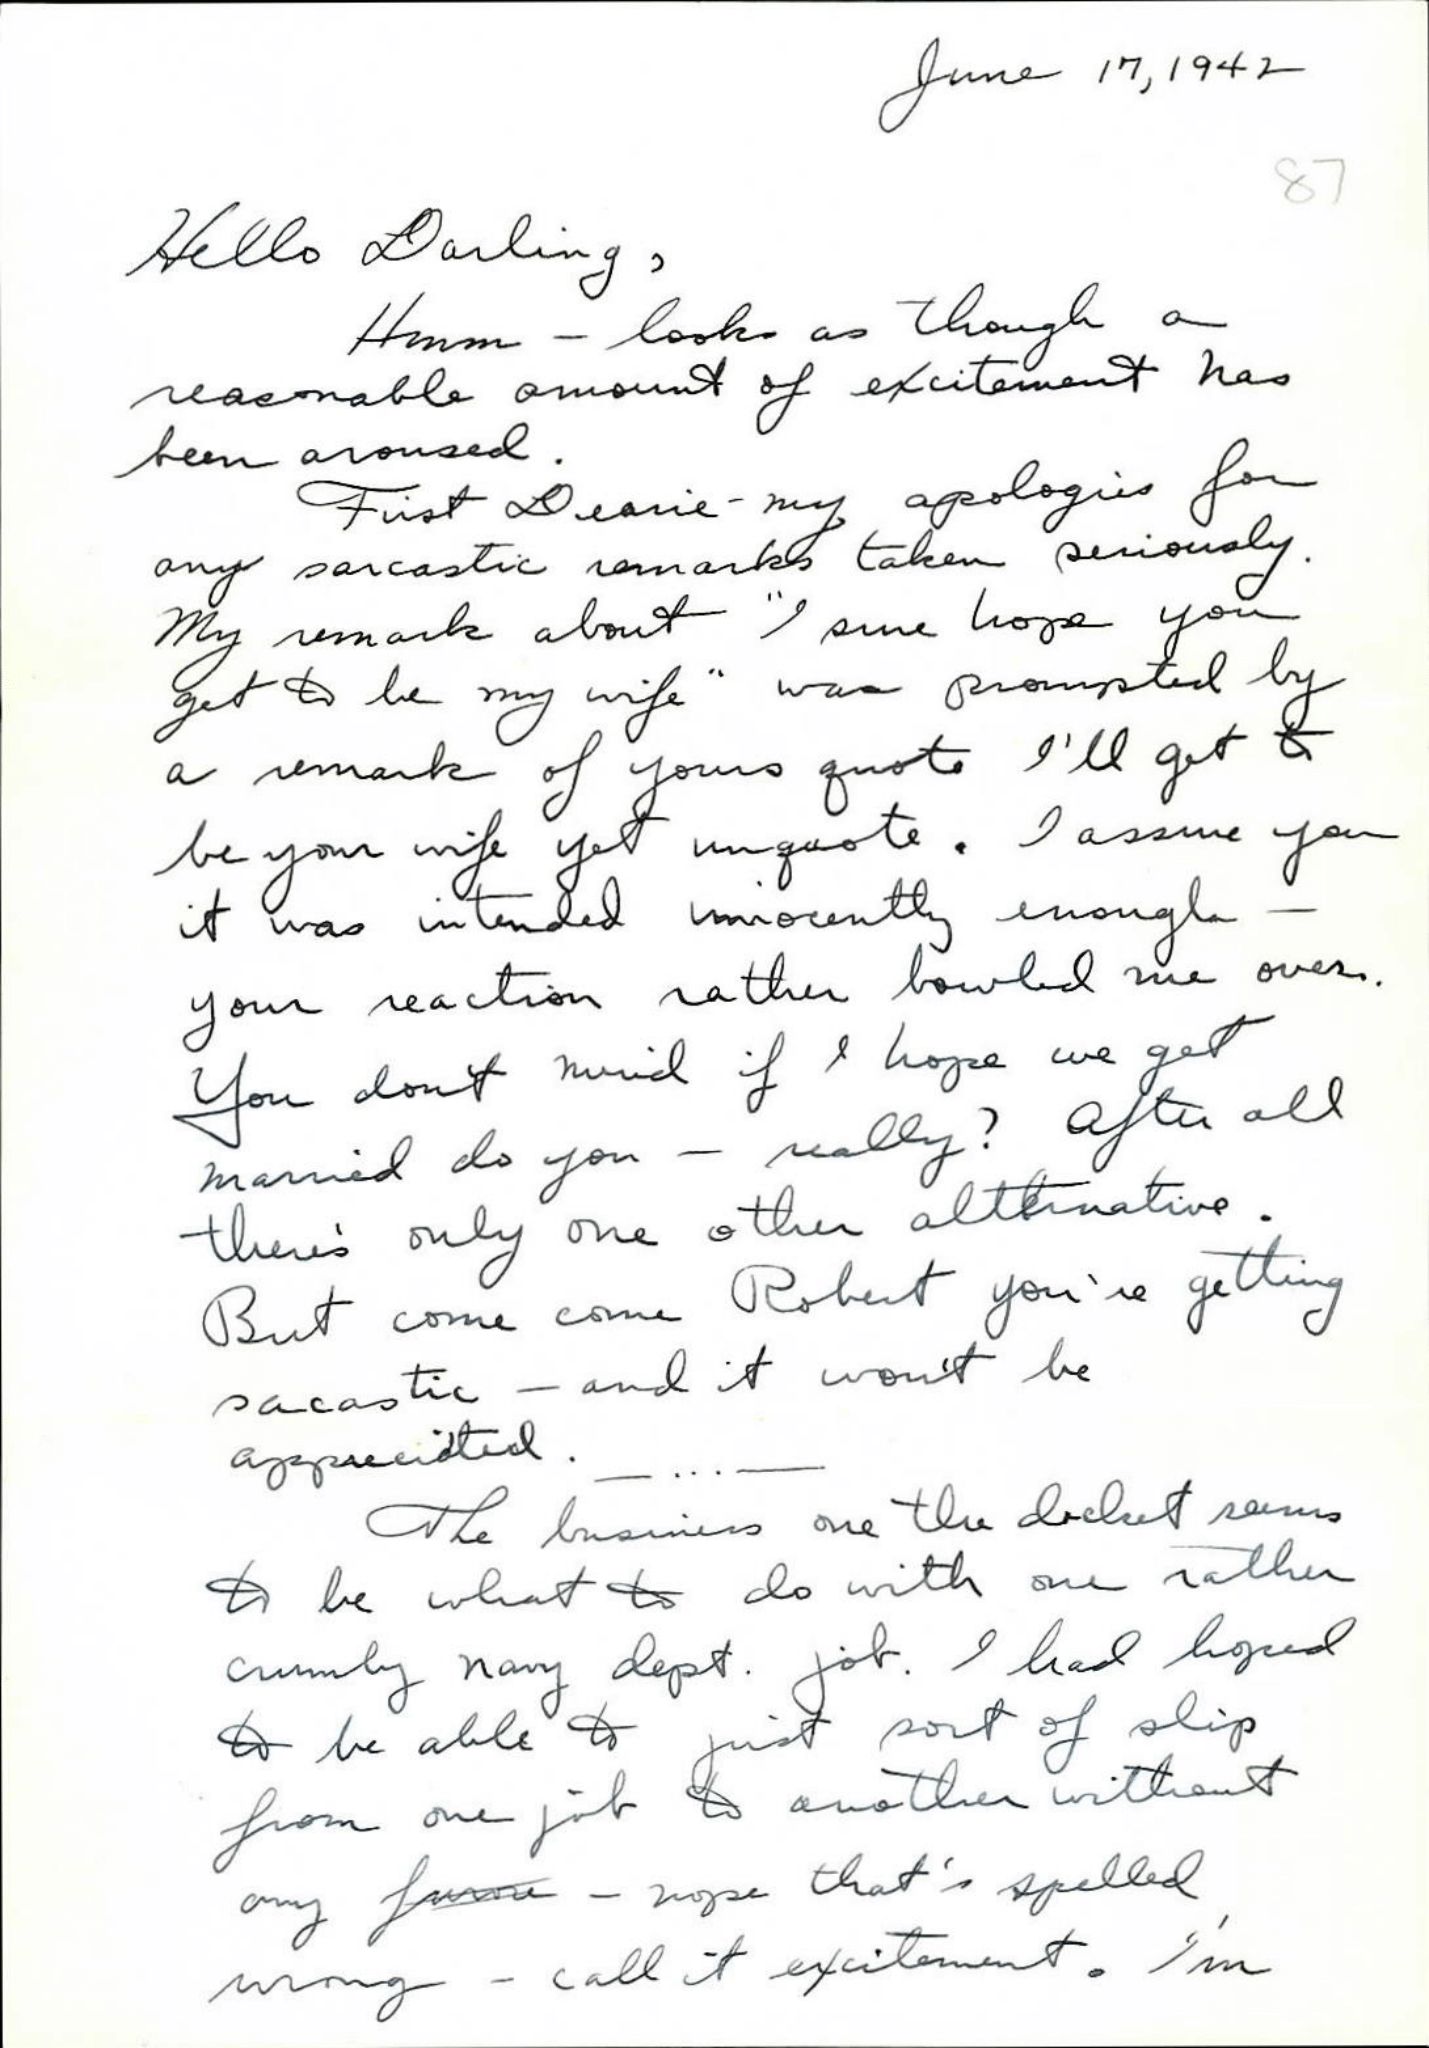 June 17, 1942
87
Hello Darling,
Hmm - looks as though a
reasonable amount of excitement has
been aroused.
First Dearie - my apologies for
any sarcastic remarks taken seriously.
My remark about "I sure hope you
get to be my wife" was prompted by
a remark of yours quote I'll get to
be your wife yet unquote. I assure you
it was intended innocently enough -
your reaction rather bowled me over.
You don't mind if I hope we get
married do you - really? After all
there's only one other altternative.
But come come Robert you're getting
sacastic - and it won't be
appreciated. — ... —
The business one the docket seems
to be what to do with one rather
crumby navy dept. job. I had hoped
to be able to just sort of slip
from one job to another without
any furore - nope that's spelled
wrong - call it excitement. I'm